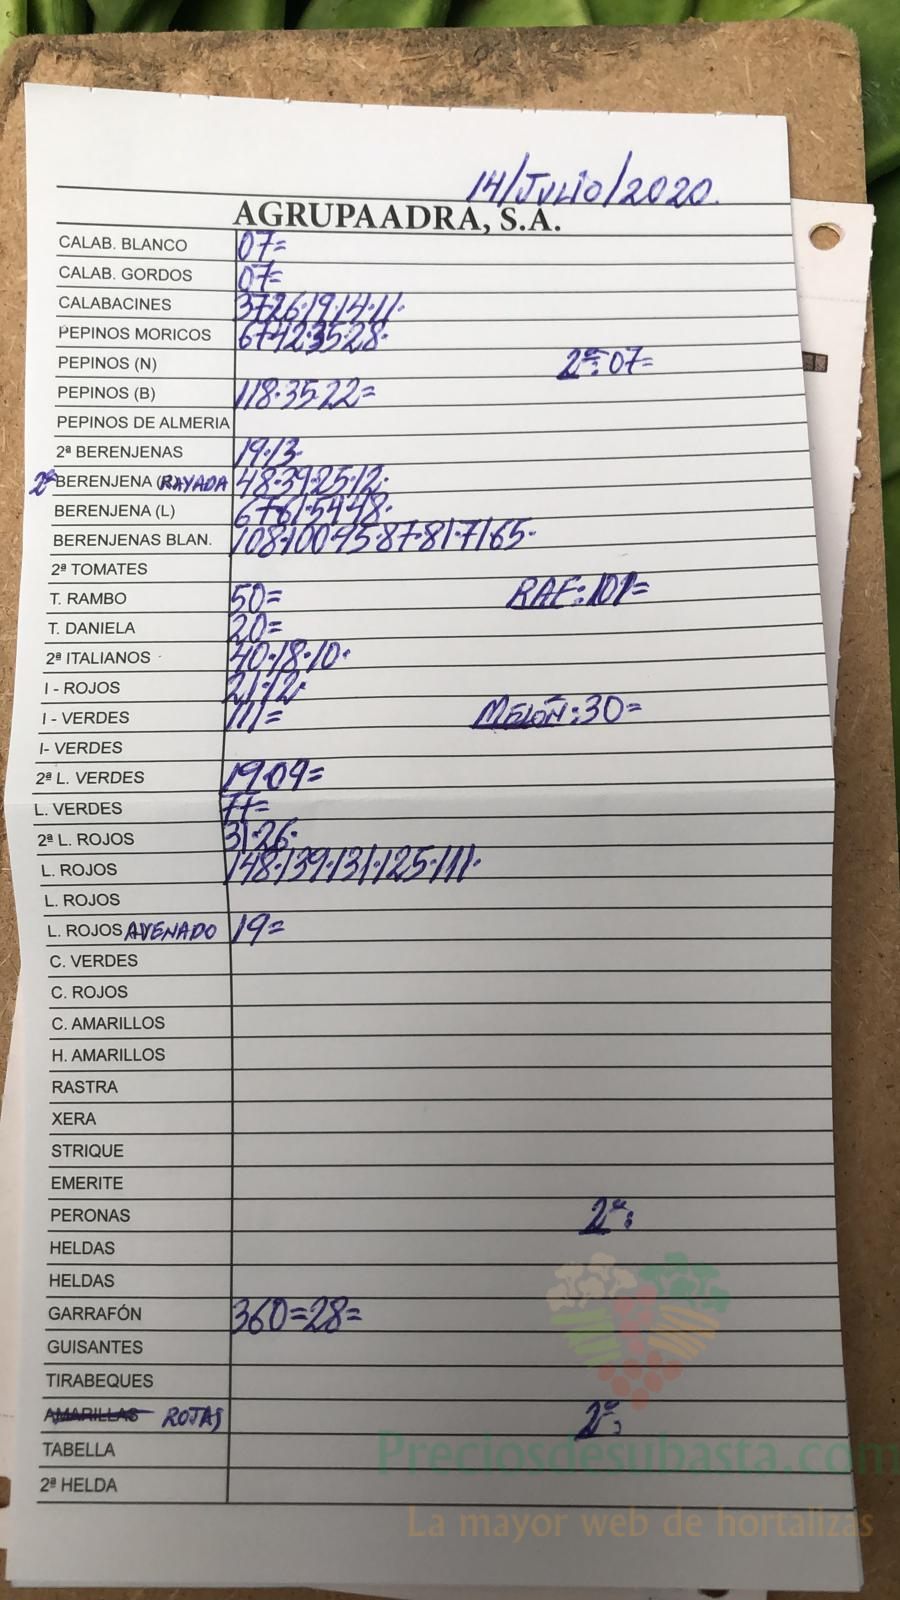 14/JULIO/2020.
AGRUPAADRA, S.A.
CALAB. BLANCO 07=
CALAB. GORDOS 07=
CALABACINES 37·26·19·14·11·
PEPINOS MORICOS 67·42·35·28·
PEPINOS (N) 2ª: 07=
PEPINOS (B) 118·35·22=
PEPINOS DE ALMERIA
2ª BERENJENAS 19·13·
2ª BERENJENA (RAYADA 48·39·25·12·
BERENJENA (L) 67·61·54·48·
BERENJENAS BLAN. 108·100·95·87·81·71·65·
2ª TOMATES
T. RAMBO 50= RAF: 101=
T. DANIELA 20=
2ª ITALIANOS 40·18·10·
I - ROJOS 21·12·
I - VERDES 111= MELÓN: 30=
I- VERDES
2ª L. VERDES 19·09=
L. VERDES 77=
2ª L. ROJOS 31·26·
L. ROJOS 148·139·131·125·111·
L. ROJOS
L. ROJOS AVENADO 19=
C. VERDES
C. ROJOS
C. AMARILLOS
H. AMARILLOS
RASTRA
XERA
STRIQUE
EMERITE
PERONAS 2ª:
HELDAS
HELDAS
GARRAFÓN 360=28=
GUISANTES
TIRABEQUES
AMARILLAS ROJAS 2ª:
TABELLA
2ª HELDA
Preciosdesubasta.com
La mayor web de hortalizas